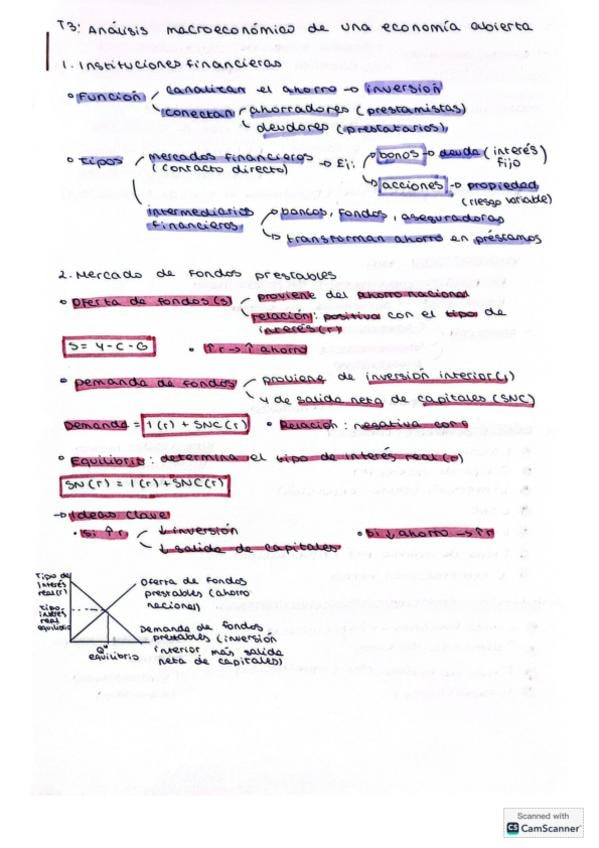 T3: Análisis macroeconómico de una economía abierta
1. Instituciones financieras
• Función canalizan el ahorro → inversión
conectan ahorradores (prestamistas)
deudores (prestatarios)
• Tipos mercados financieros → Ej: bonos → deuda (interés fijo)
(contacto directo) acciones → propiedad (riesgo variable)
intermediarios financieros → bancos, fondos, aseguradoras
↳ transforman ahorro en préstamos
2. Mercado de fondos prestables
• Oferta de fondos (S) proviene del ahorro nacional
relación: positiva con el tipo de
interés (r)
S = Y - C - G • ↑r → ↑ ahorro
• Demanda de fondos proviene de inversión interior (I)
y de salida neta de capitales (SNC)
Demanda = I (r) + SNC (r) • Relación: negativa con
• Equilibrio: determina el tipo de interés real (r)
SN (r) = I (r) + SNC (r)
→ Ideas clave
• Si ↑r ↓ inversión • Si ↓ ahorro → ↑r
↓ salida de capitales
Tipo de
interés
real (r)
Oferta de fondos
prestables (ahorro
nacional)
Tipo
interés
real
equilibrio
Demanda de fondos
prestables (inversión
interior más salida
neta de capitales)
Q*
equilibrio
Scanned with
CS CamScanner